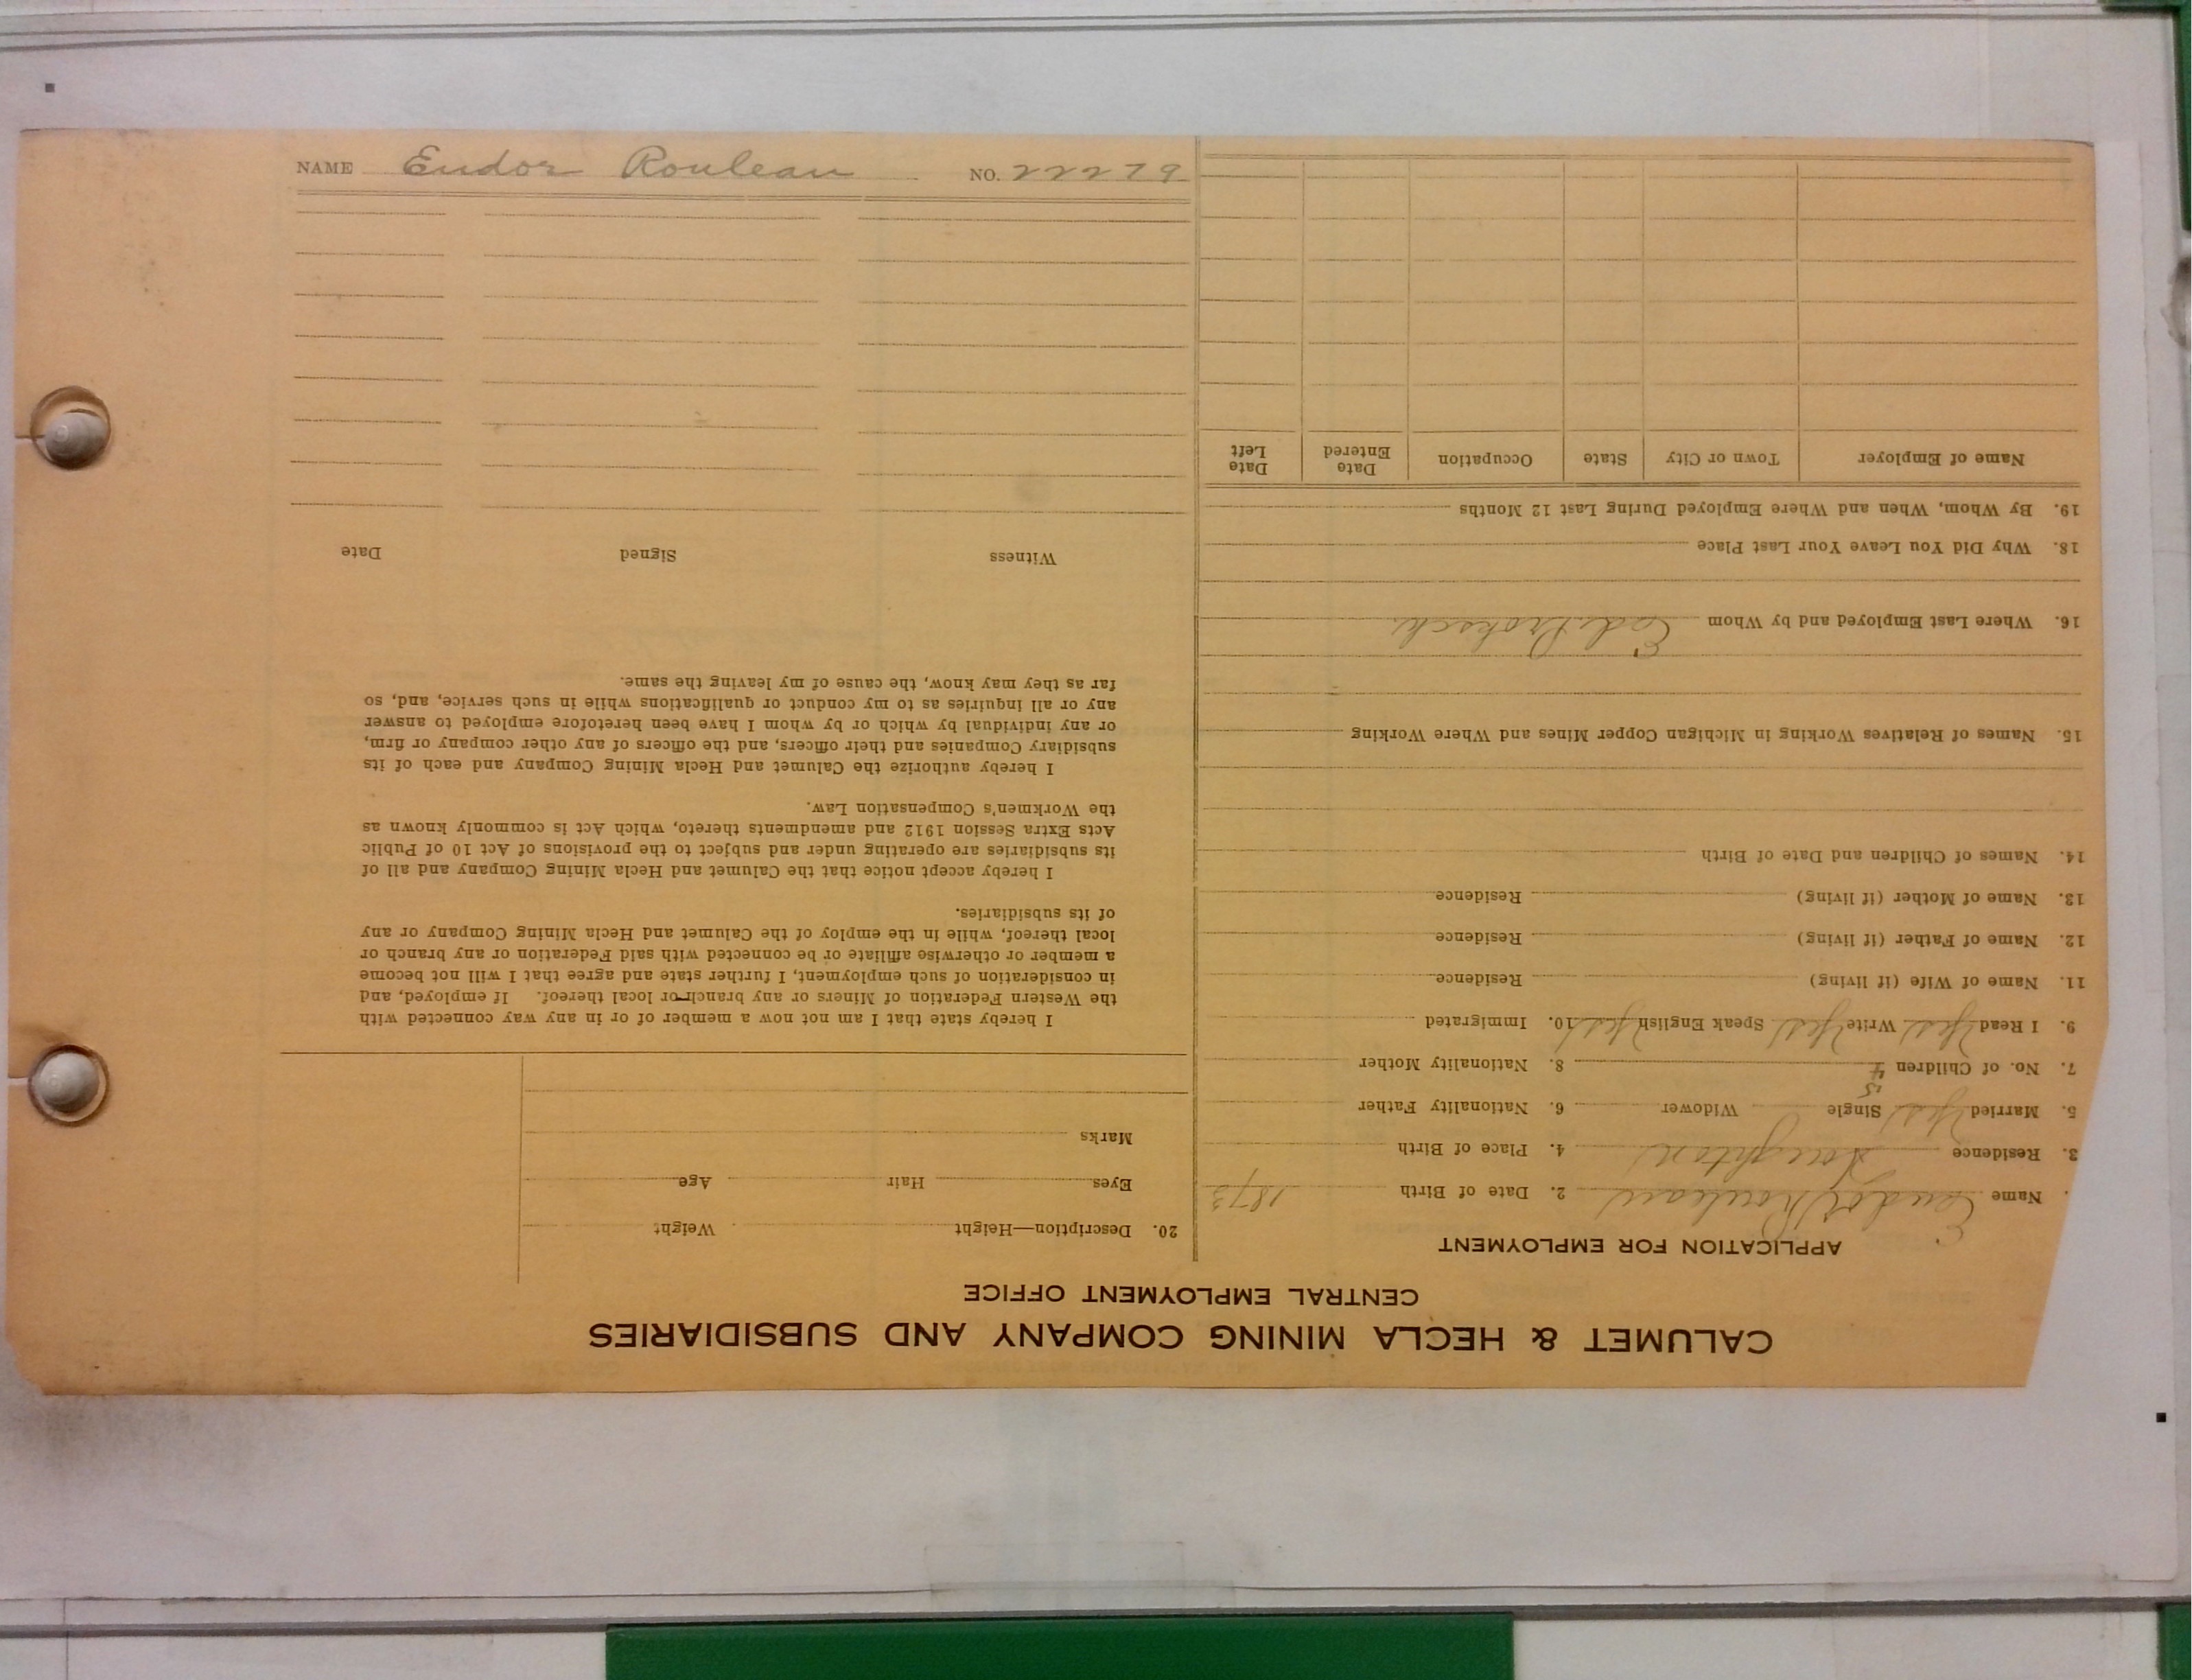 CALUMET & HECLA MINING COMPANY AND SUBSIDIARIES
CENTRAL EMPLOYMENT OFFICE
APPLICATION FOR EMPLOYMENT
Name Eudor Rouleau 2. Date of Birth 1873
3. Residence Houghton 4. Place of Birth
5. Married Yes Single Widower 6. Nationality Father
5
7. No. of Children 4 8. Nationality Mother
9. I Read Yes Write Yes Speak English Yes 10. Immigrated
11. Name of Wife (if living) Residence
12. Name of Father (if living) Residence
13. Name of Mother (if living) Residence
14. Names of Children and Date of Birth
15. Names of Relatives Working in Michigan Copper Mines and Where Working
16. Where Last Employed and by Whom
18. Why Did You Leave Your Last Place
19. By Whom, When and Where Employed During Last 12 Months
Name of Employer Town or City State Occupation Date Entered Date Left
20. Description—Height Weight
Eyes Hair Age
Marks
I hereby state that I am not now a member of or in any way connected with
the Western Federation of Miners or any branch or local thereof. If employed, and
in consideration of such employment, I further state and agree that I will not become
a member or otherwise affiliate or be connected with said Federation or any branch or
local thereof, while in the employ of the Calumet and Hecla Mining Company or any
of its subsidiaries.
I hereby accept notice that the Calumet and Hecla Mining Company and all of
its subsidiaries are operating under and subject to the provisions of Act 10 of Public
Acts Extra Session 1912 and amendments thereto, which Act is commonly known as
the Workmen's Compensation Law.
I hereby authorize the Calumet and Hecla Mining Company and each of its
subsidiary Companies and their officers, and the officers of any other company or firm,
or any individual by which or by whom I have been heretofore employed to answer
any or all inquiries as to my conduct or qualifications while in such service, and, so
far as they may know, the cause of my leaving the same.
Witness Signed Date
NAME Eudor Rouleau NO. 22279